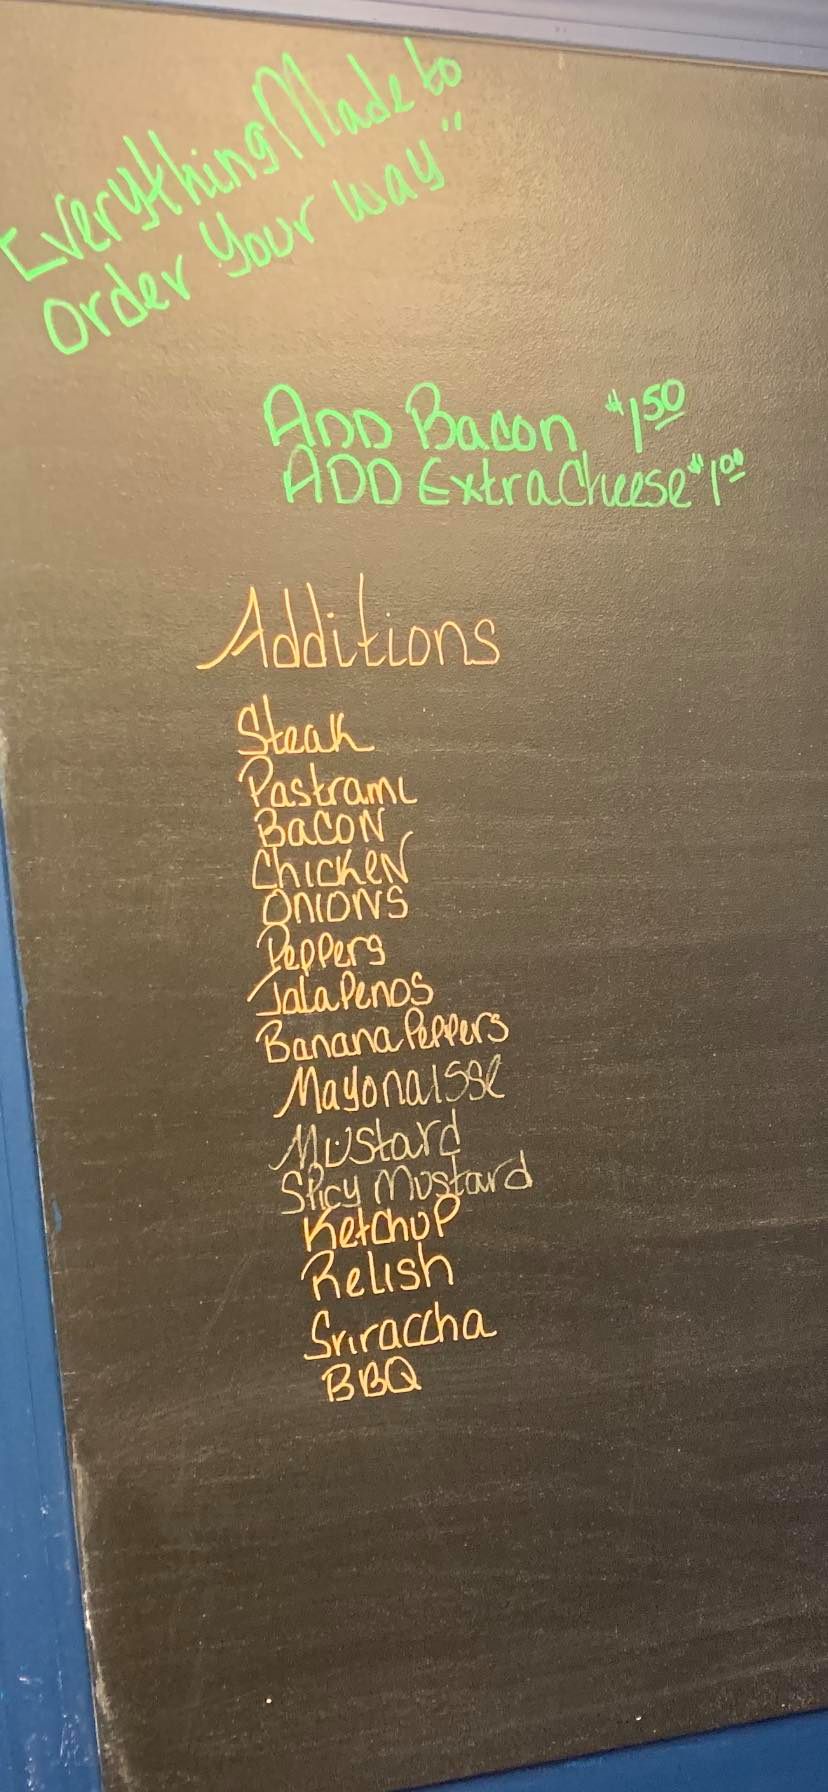 Everything Made to
Order Your Way"
ADD Bacon $1.50
ADD Extra Cheese $1.00
Additions
Steak
Pastrami
BACON
CHICKEN
ONIONS
Peppers
Jalapenos
Banana Peppers
Mayonaisse
Mustard
Spicy Mustard
Ketchup
Relish
Sriraccha
BBQ